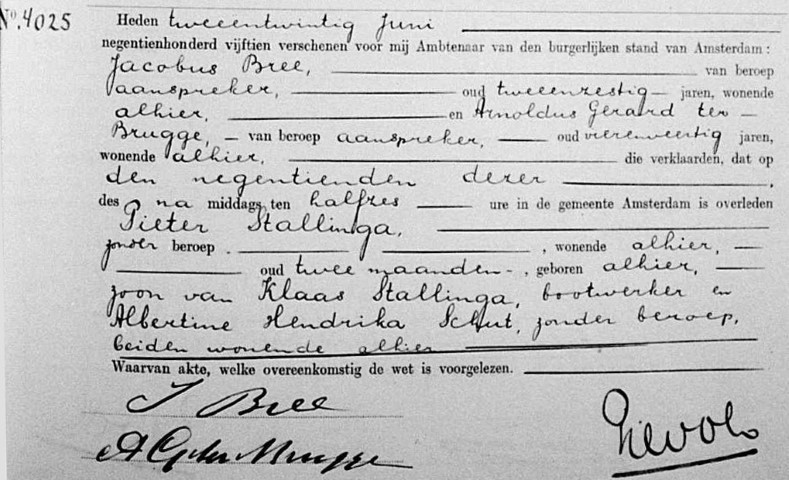 No. 4025
Heden tweeentwintig Juni
negentienhonderd vijftien verschenen voor mij Ambtenaar van den burgerlijken stand van Amsterdam:
Jacobus Bree, van beroep
aanspreker, oud tweeenzestig jaren, wonende
alhier, en Arnoldus Gerard ter
Brugge, van beroep aanspreker, oud vierenveertig jaren,
wonende alhier, die verklaarden, dat op
den negentienden dezer,
des na middags ten halfzes ure in de gemeente Amsterdam is overleden
Pieter Stallinga,
zonder beroep, wonende alhier,
oud twee maanden, geboren alhier,
zoon van Klaas Stallinga, bootwerker en
Albertine Hendrika Schut, zonder beroep,
beiden wonende alhier
Waarvan akte, welke overeenkomstig de wet is voorgelezen.
J Bree
A G ter Brugge